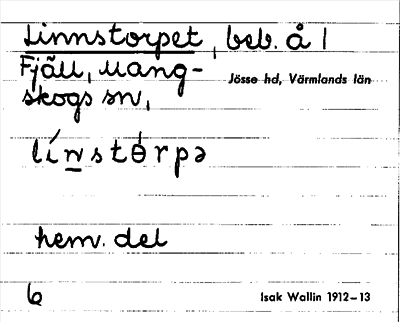 Linnstorpet, beb. å 1
Fjäll, Mang-
skogs sn,
Jösse hd, Värmlands län
línstɵ́rpə
hem. del
6
Isak Wallin 1912–13